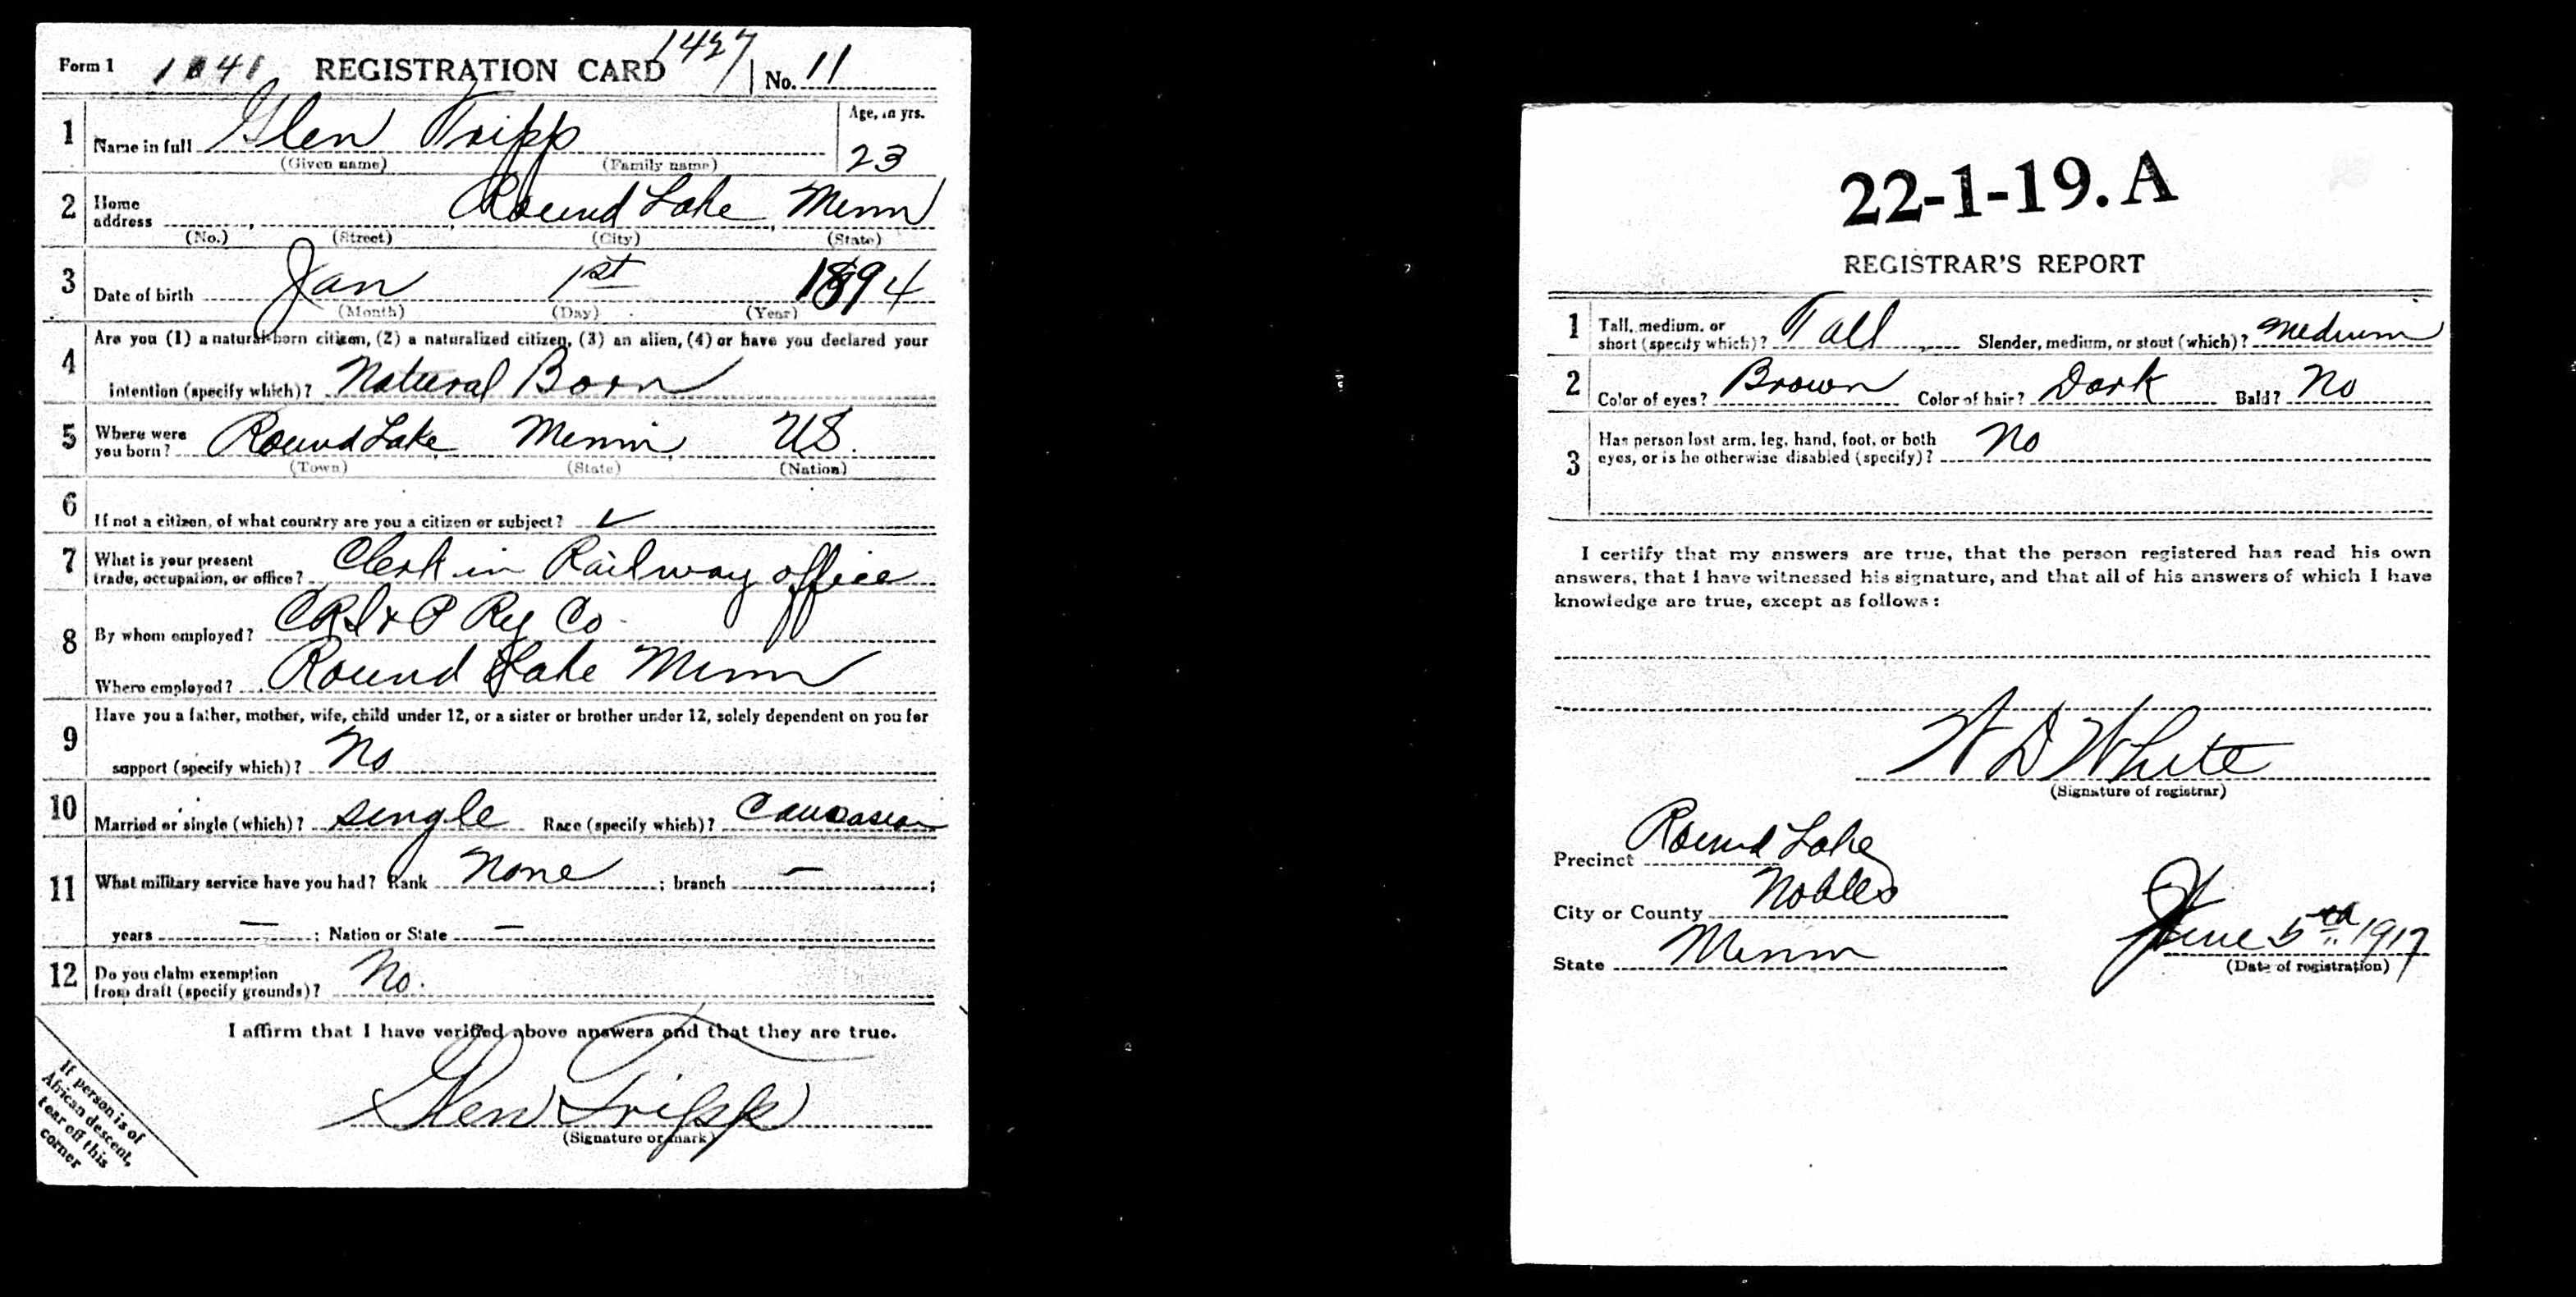 1427
Form 1 1841 REGISTRATION CARD No. 11
1 Name in full Glen Tripp Age, in yrs.
(Given name) (Family name) 23
2 Home address Round Lake Minn
(No.) (Street) (City) (State)
3 Date of birth Jan 1st 1894
(Month) (Day) (Year)
4 Are you (1) a natural-born citizen, (2) a naturalized citizen, (3) an alien, (4) or have you declared your
intention (specify which)? Natural Born
5 Where were you born? Round Lake Minn US.
(Town) (State) (Nation)
6 If not a citizen, of what country are you a citizen or subject? ✓
7 What is your present
trade, occupation, or office? Clerk in Railway office
8 By whom employed? CRI & P Ry Co.
Where employed? Round Lake Minn
9 Have you a father, mother, wife, child under 12, or a sister or brother under 12, solely dependent on you for
support (specify which)? No
10 Married or single (which)? single Race (specify which)? Caucasian
11 What military service have you had? Rank None ; branch — ;
years — ; Nation or State —
12 Do you claim exemption
from draft (specify grounds)? No.
I affirm that I have verified above answers and that they are true.
Glen Tripp
(Signature or mark)
If person is of
African descent,
tear off this
corner
22-1-19. A
REGISTRAR'S REPORT
1 Tall, medium, or
short (specify which)? Tall Slender, medium, or stout (which)? medium
2 Color of eyes? Brown Color of hair? Dark Bald? No
3 Has person lost arm, leg, hand, foot, or both
eyes, or is he otherwise disabled (specify)? No
I certify that my answers are true, that the person registered has read his own
answers, that I have witnessed his signature, and that all of his answers of which I have
knowledge are true, except as follows:
W D White
(Signature of registrar)
Precinct Round Lake
City or County Nobles
State Minn
June 5th 1917
(Date of registration)